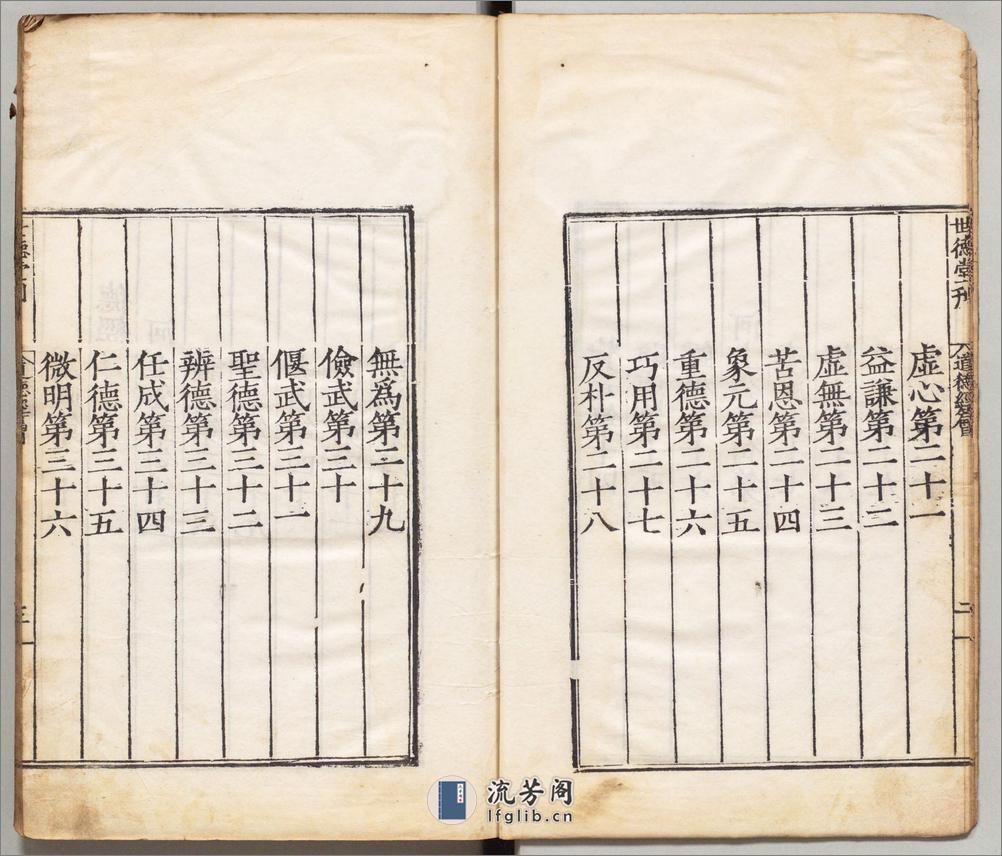 世德堂刊
道德經
二
虛心第二十一
益謙第二十二
虛無第二十三
苦恩第二十四
象元第二十五
重德第二十六
巧用第二十七
反朴第二十八
無爲第二十九
儉武第三十
偃武第三十一
聖德第三十二
辨德第三十三
任成第三十四
仁德第三十五
微明第三十六
流芳阁
lfglib.cn